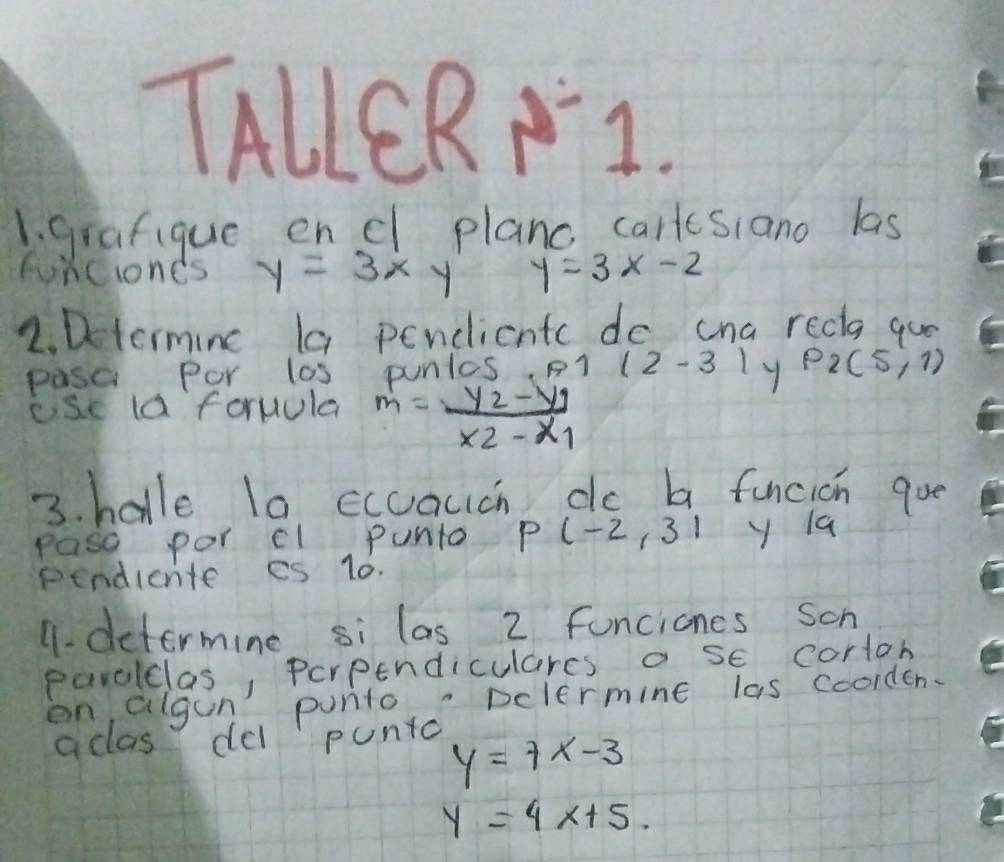 TALLER N° 1.
1. grafique en el plano cartesiano las
funciones y = 3x y y = 3x - 2
2. Determine la pendiente de una recta que
pasa por los puntos . P1 (2 - 3) y P2 (5, 1)
use la formula m = y2 - y1
x2 - x1
3. halle la ecuación de la función que
pasa por el punto P (-2, 3) y la
pendiente es 10.
4. determine si las 2 funciones son
paralelas, perpendiculares o se cortan
en algun punto . Determine las coorden-
adas del punto
y = 7x - 3
y = 4x + 5.